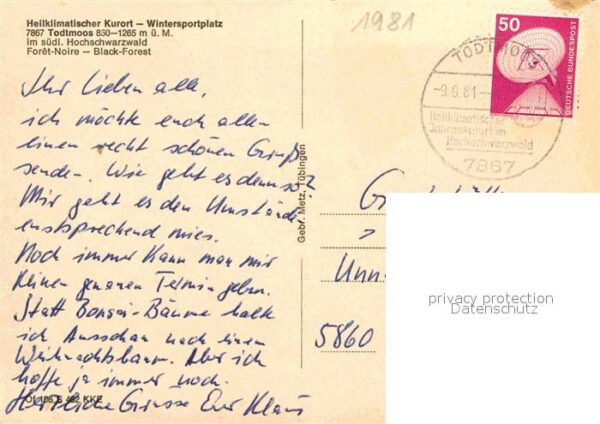 Heilklimatischer Kurort — Wintersportplatz
7867 Todtmoos 850—1265 m ü. M.
im südl. Hochschwarzwald
Forêt-Noire — Black-Forest
1981
50
DEUTSCHE BUNDESPOST
TODTMOOS
-9.9.81--
Heilklimatischer
Jahreskurort im
Hochschwarzwald
7867
Ihr Lieben alle,
ich möchte euch allen
einen recht schönen Gruß
senden. Wie geht es denn so?
Mir geht es den Umständen
entsprechend mies.
Noch immer kann man mir
keinen genauen Termin geben.
Statt Bonsai-Bäume halte
ich Ausschau nach einem
Weihnachtsbaum. Aber ich
hoffe ja immer noch.
Herzliche Grüsse Euer Klaus
Gebr. Metz, Tübingen
5860
privacy protection
Datenschutz